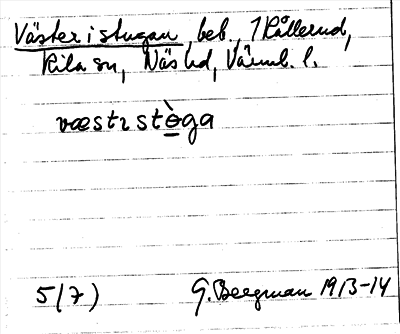 Väster i stugan, beb., 1 Rållerud,
Kila sn, Näs hd, Värml. l.
væstɪstò̱ga
5(7) G. Bergman 1913-14